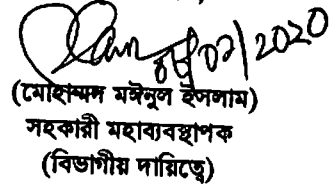 ০৪/০২/2020
(মোহাম্মদ মঈনুল ইসলাম)
সহকারী মহাব্যবস্থাপক
(বিভাগীয় দায়িত্বে)